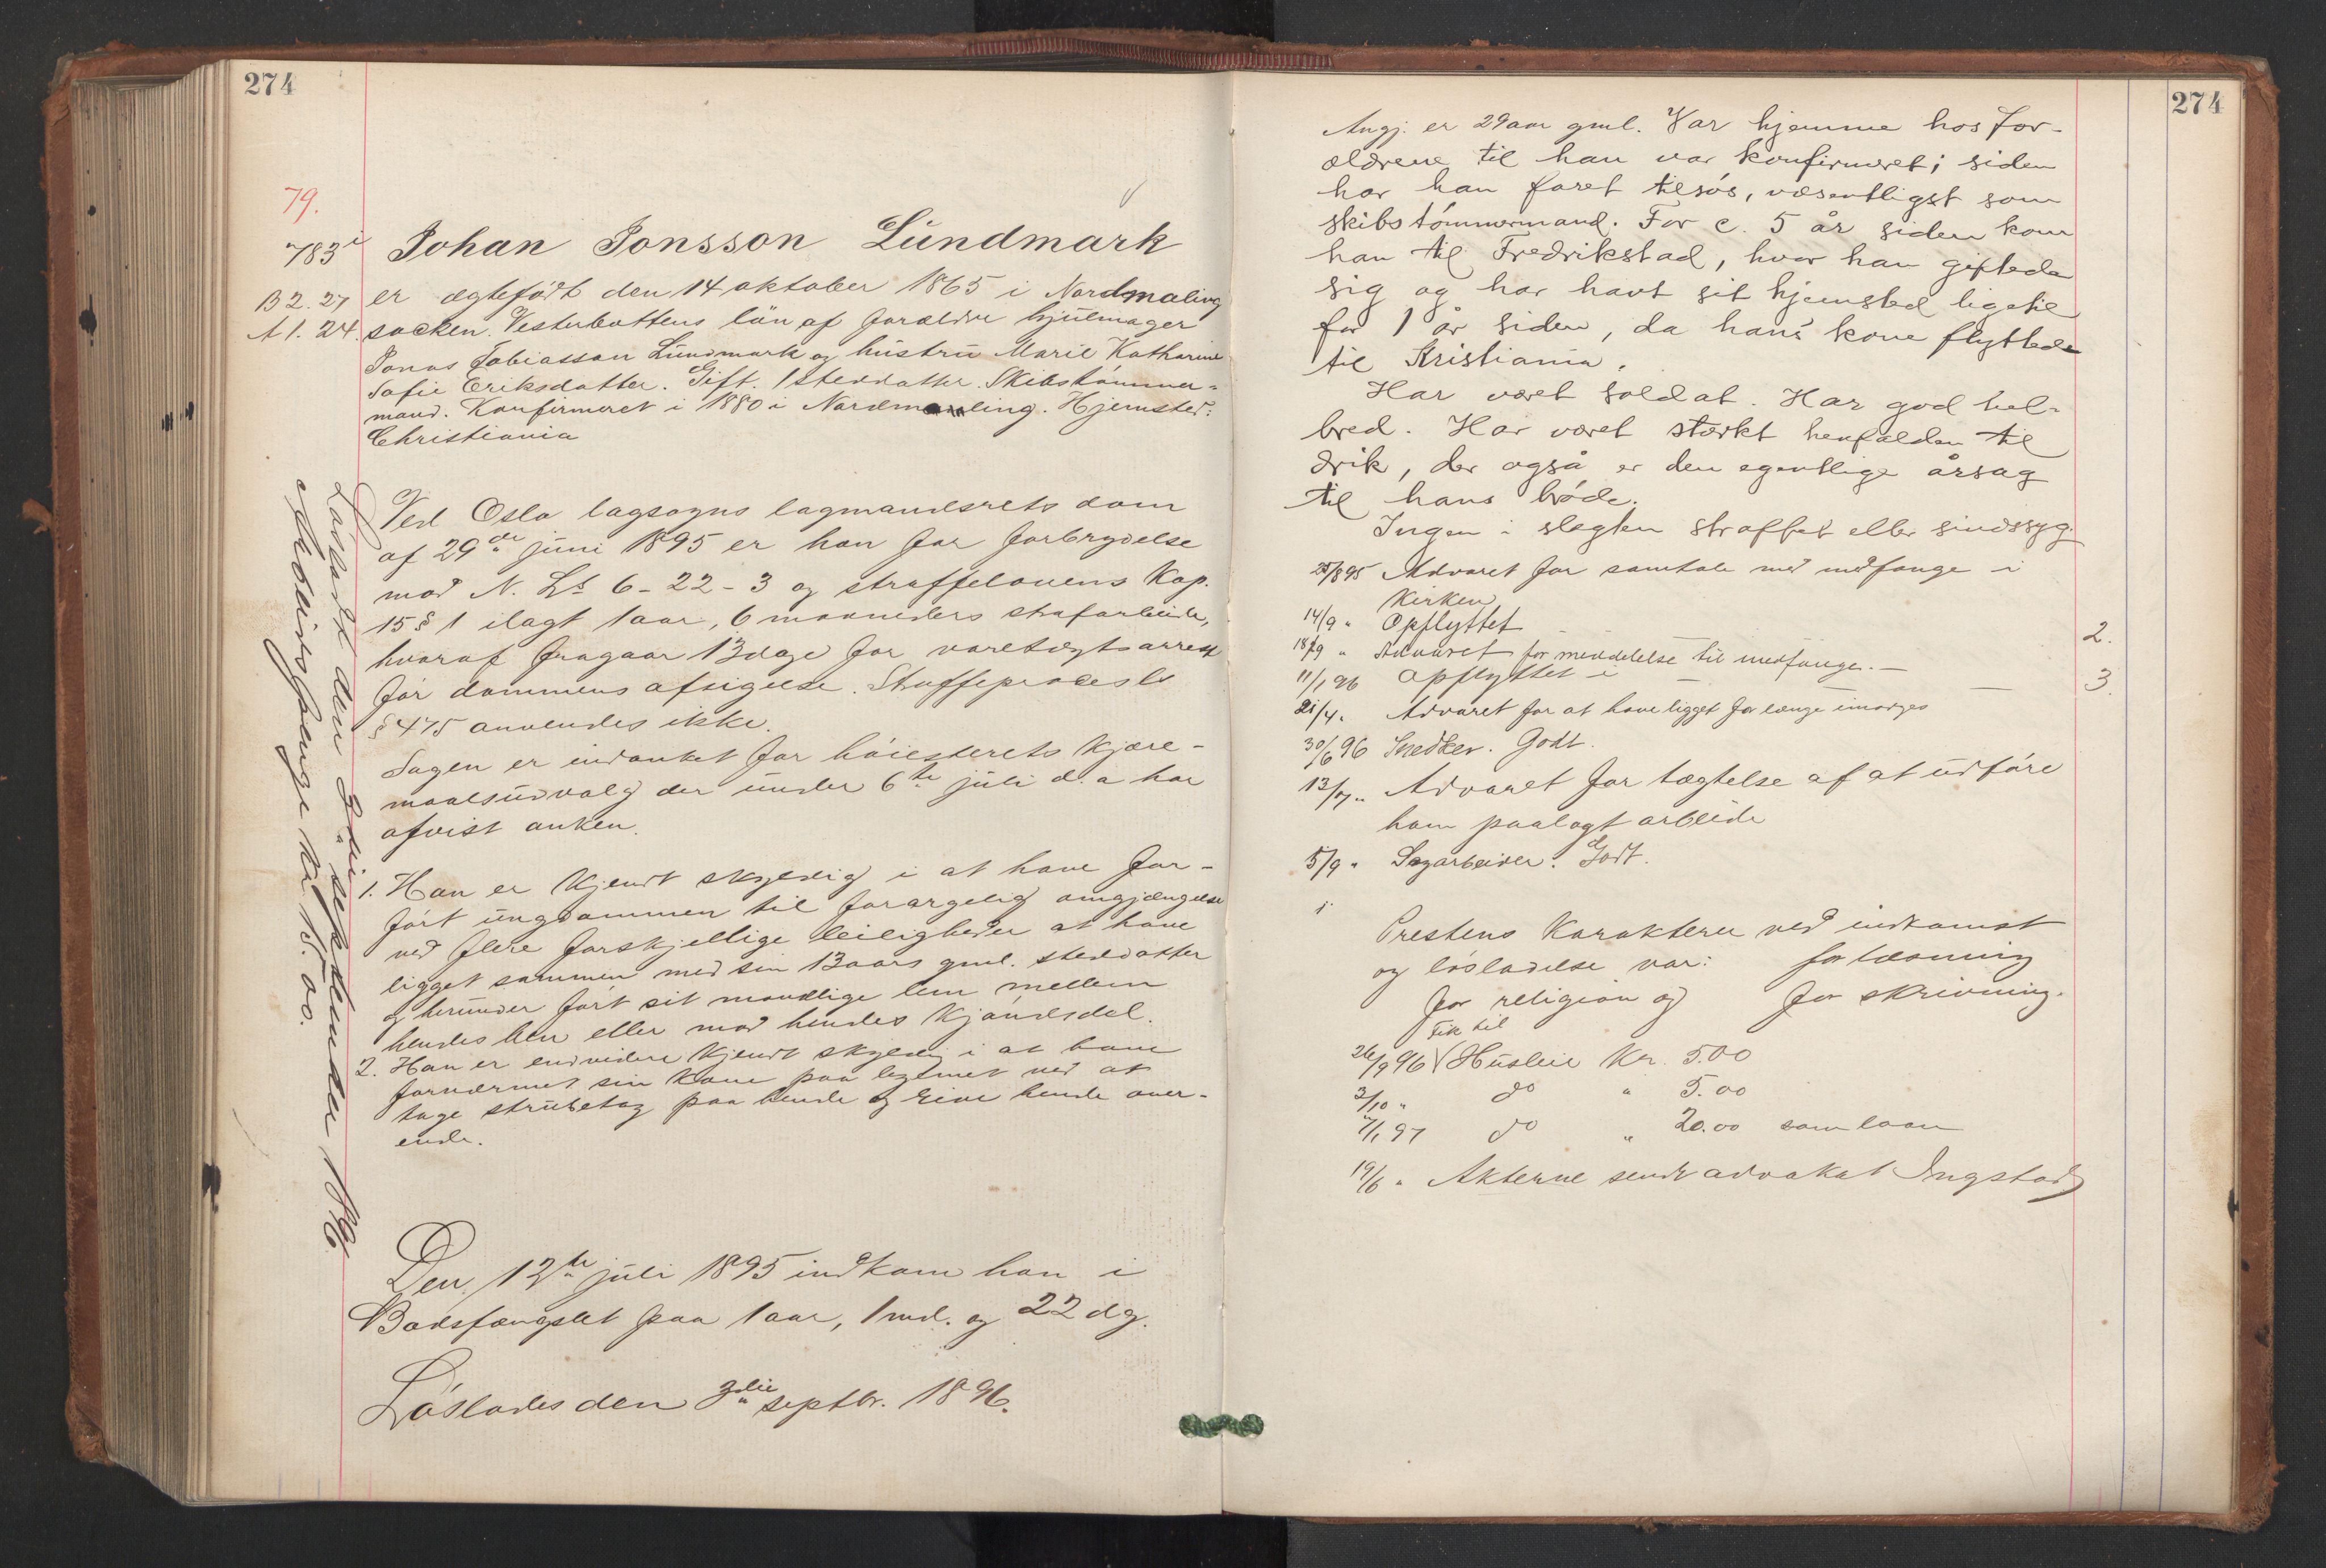 274
79.
783
B 2. 27
A 1. 24.
Johan Jonsson Lundmark
er ægtefødt den 14 oktober 1865 i Nordmaling
socken. Vesterbottens län af forældre hjulmager
Jonas Tobiasson Lundmark og hustru Marie Katharine
Sofie Eriksdatter. Gift. 1 steddatter. Skibstømmer-
mand. Konfirmeret i 1880 i Nordmaling. Hjemsted:
Christiania
Ved Oslo lagsogns lagmandsrets dom
af 29de juni 1895 er han for forbrydelse
mod N. Ls 6-22-3 og straffelovens Kap.
15 § 1 ilagt 1 aar, 6 maaneders strafarbeide,
hvoraf fragaar 13 dage for varetægtsarrest
før dommens afsigelse. Straffeprocesls
§ 475 anvendes ikke.
Sagen er indanket for høiesterets kjære-
maalsudvalg der under 6te juli d.a har
afvist anken.
1. Han er kjendt skyldig i at have for-
ført ungdommen til forargelig omgjængelse
ved flere forskjellige leiligheder at have
ligget sammen med sin 13 aars gml. steddatter
og herunder ført sit mandlige lem mellem
hendes ben eller mod hendes kjønsdel.
2. Han er endvidere kjendt skyldig i at have
fornærmet sin kone paa legemet ved at
tage strubetag paa hende og rive hende over-
ende.
Den 12te juli 1895 indkom han i
Bodsfængslet paa 1 aar, 1 md. og 22 dg.
Løslades den 3die septbr. 1896.
Løsladt den 3die september 1896.
Arbeidspenge kr 15.00.
274
Angj. er 29 aar gml. Var hjemme hos for-
ældrene til han var konfirmeret; siden
har han faret tilsøs, væsentligst som
skibstømmermand. For c. 5 år siden kom
han til Fredrikstad, hvor han giftede
sig og har havt sit hjemsted ligetil
for 1 år siden, da hans kone flyttede
til Kristiania.
Har været soldat. Har god hel-
bred. Har været stærkt henfalden til
drik, der også er den egentlige årsag
til hans brøde.
Ingen i slegten straffet eller sindssyg.
25/8 95 Advaret for samtale med medfange i
Kirken
14/9 " Opflyttet 2.
18/9 " Advaret for meddelelse til medfange. —
11/1 96 Opflyttet i — — 3.
21/4 " Advaret for at have ligget for længe imorges
30/6 96 Snedker. Godt.
13/7 " Advaret for tægtelse af at udføre
ham paalagt arbeide
5/9 " Sagarbeider. Godt.
Prestens Karakterer ved indkomst
og løsladelse var: for læsning
for religion og for skrivning.
Fik til
26/9 96 Husleie Kr. 5.00
3/10 " do " 5.00
7/1 97 do " 20.00 som laan
19/6 " Akterne sendt advokat Ingstad